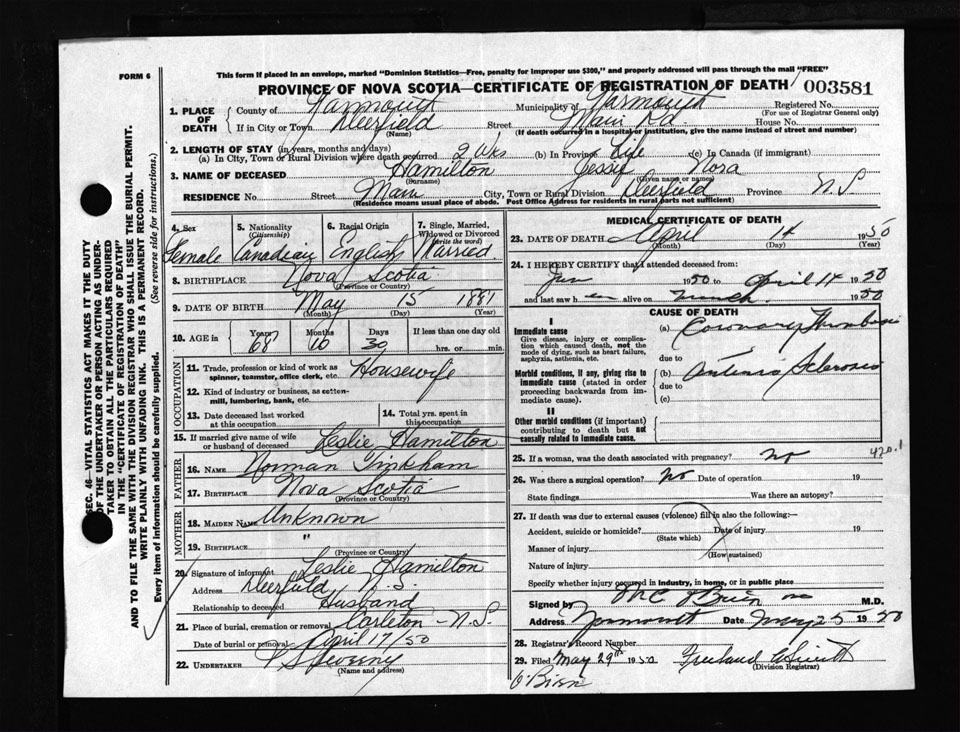 This form if placed in an envelope, marked "Dominion Statistics—Free, penalty for improper use $300," and properly addressed will pass through the mail "FREE"
FORM 6
PROVINCE OF NOVA SCOTIA—CERTIFICATE OF REGISTRATION OF DEATH 003581
1. PLACE OF DEATH
County of Yarmouth Municipality of Yarmouth Registered No.
(For use of Registrar General only)
If in City or Town Deerfield Street Main Rd. House No.
(Name) (If death occurred in a hospital or institution, give the name instead of street and number)
2. LENGTH OF STAY (in years, months and days)
(a) In City, Town or Rural Division where death occurred 2 Wks (b) In Province Life (c) In Canada (if immigrant)
3. NAME OF DECEASED Hamilton Jessie Nora
(Surname) (Given name or names)
RESIDENCE No. Street Main City, Town or Rural Division Deerfield Province N.S
(Residence means usual place of abode. Post Office Address for residents in rural parts not sufficient)
SEC. 46—VITAL STATISTICS ACT MAKES IT THE DUTY
OF THE UNDERTAKER OR PERSON ACTING AS UNDER-
TAKER TO OBTAIN ALL THE PARTICULARS REQUIRED
IN THE "CERTIFICATE OF REGISTRATION OF DEATH"
AND TO FILE THE SAME WITH THE DIVISION REGISTRAR WHO SHALL ISSUE THE BURIAL PERMIT.
WRITE PLAINLY WITH UNFADING INK. THIS IS A PERMANENT RECORD.
Every item of information should be carefully supplied. (See reverse side for instructions.)
4. Sex
Female
5. Nationality
(Citizenship)
Canadian
6. Racial Origin
English
7. Single, Married,
Widowed or Divorced
(write the word)
Married.
8. BIRTHPLACE Nova Scotia
(Province or Country)
9. DATE OF BIRTH May 15 1881
(Month) (Day) (Year)
10. AGE in
Years Months Days If less than one day old
68 10 30 hrs. or min.
OCCUPATION
11. Trade, profession or kind of work as Housewife
spinner, teamster, office clerk, etc.
12. Kind of industry or business, as cotton-
mill, lumbering, bank, etc.
13. Date deceased last worked
at this occupation
14. Total yrs. spent in
this occupation
15. If married give name of wife
or husband of deceased Leslie Hamilton
FATHER
16. NAME Norman Tinkham
17. BIRTHPLACE Nova Scotia
(Province or Country)
MOTHER
18. MAIDEN NAME Unknown
19. BIRTHPLACE "
(Province or Country)
20. Signature of informant Leslie Hamilton
Address Deerfield N.S.
Relationship to deceased Husband
21. Place of burial, cremation or removal Carleton - N.S.
Date of burial or removal April 17/50
22. UNDERTAKER V S Sweeny
(Name and address)
MEDICAL CERTIFICATE OF DEATH
23. DATE OF DEATH April 14 1950
(Month) (Day) (Year)
24. I HEREBY CERTIFY that I attended deceased from
Jan 1950 to April 14 1950
and last saw her alive on March 1950
CAUSE OF DEATH
I
Immediate cause
Give disease, injury or complica-
tion which caused death, not the
mode of dying, such as heart failure,
asphyxia, asthenia, etc.
(a) Coronary Thrombosis
due to
Morbid conditions, if any, giving rise to
immediate cause (stated in order
proceeding backwards from im-
mediate cause).
(b) Arterio Sclerosis
due to
(c)
II
Other morbid conditions (if important)
contributing to death but not
causally related to immediate cause.
25. If a woman, was the death associated with pregnancy? no 420.1
26. Was there a surgical operation? No Date of operation 19
State findings Was there an autopsy?
27. If death was due to external causes (violence) fill in also the following:—
Accident, suicide or homicide? Date of injury 19
(State which)
Manner of injury
(How sustained)
Nature of injury
Specify whether injury occurred in industry, in home, or in public place
Signed by O'Brien M.D.
Address Yarmouth Date May 25 1950
28. Registrar's Record Number
29. Filed May 29th 1950
(Division Registrar)
O'Brien